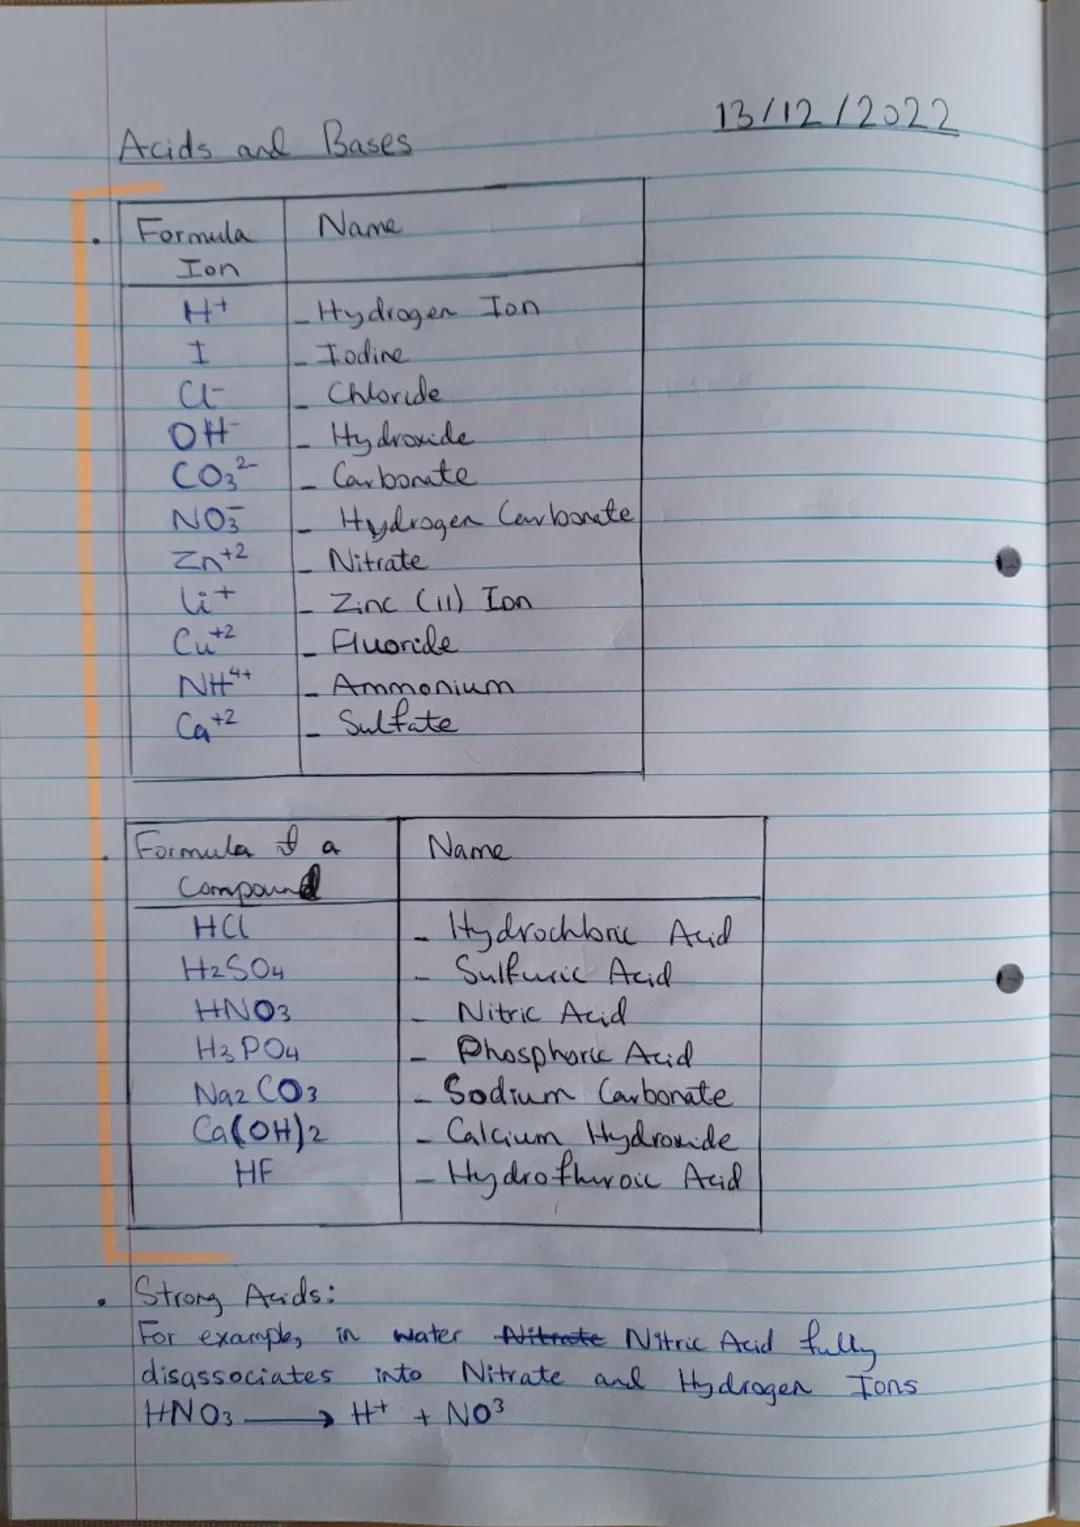 13/12/2022
Acids and Bases
Formula Ion | Name
H+ - Hydrogen Ion
I - Iodine
Cl- - Chloride
OH- - Hydroxide
CO3 2- - Carbonate
NO3- - Hydrogen Carbonate
Zn+2 - Nitrate
Li+ - Zinc (II) Ion
Cu+2 - Fluoride
NH4+ - Ammonium
Ca+2 - Sulfate
Formula of a Compound | Name
HCl - Hydrochloric Acid
H2SO4 - Sulfuric Acid
HNO3 - Nitric Acid
H3PO4 - Phosphoric Acid
Na2CO3 - Sodium Carbonate
Ca(OH)2 - Calcium Hydroxide
HF - Hydrofluroic Acid
• Strong Acids:
For example, in water Nitrate Nitric Acid fully
disassociates into Nitrate and Hydrogen Ions
HNO3 → H+ + NO3